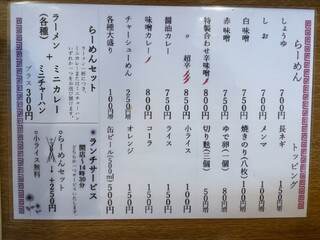 らーめん
しょうゆ 700円
しお 700円
白味噌 750円
赤味噌 750円
特製合わせ辛味噌 800円
〃 超辛 850円
醤油カレー 750円
味噌カレー 800円
チャーシューめん 250円増
各種大盛り 100円
トッピング
長ネギ 150円
メンマ 100円
焼きのり(八枚) 100円
ゆで卵(一個)
切り豚(三個)
小ライス 100円
ライス 150円
コーラ 150円
オレンジ 150円
缶ビール 500円
らーめんセット
ラーメン + ミニカレー
(各種) ミニチャーハン
プラス 300円
ランチサービス
開店~14時30分
○らーめんセット
+250円
○小ライス無料